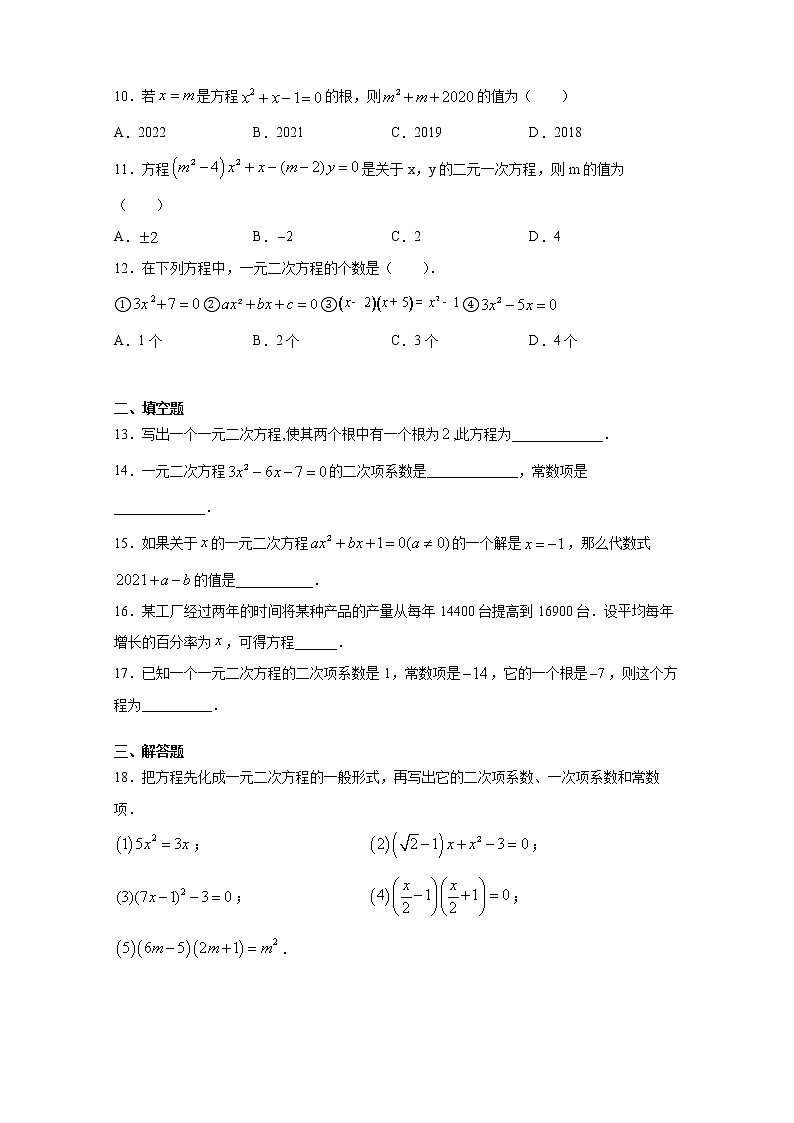 10．若 x = m 是方程 x² + x − 1 = 0 的根，则 m² + m + 2020 的值为（　　）
A．2022　　B．2021　　C．2019　　D．2018
11．方程 (m² − 4)x² + x − (m − 2)y = 0 是关于 x，y 的二元一次方程，则 m 的值为
（　　）
A．±2　　B．−2　　C．2　　D．4
12．在下列方程中，一元二次方程的个数是（　　）．
①3x² + 7 = 0 ②ax² + bx + c = 0 ③(x - 2)(x + 5) = x² - 1 ④3x² − 5x = 0
A．1个　　B．2个　　C．3个　　D．4个
二、填空题
13．写出一个一元二次方程,使其两个根中有一个根为 2,此方程为_____________．
14．一元二次方程 3x² − 6x − 7 = 0 的二次项系数是_____________，常数项是
_____________．
15．如果关于 x 的一元二次方程 ax² + bx + 1 = 0(a ≠ 0) 的一个解是 x = −1，那么代数式
2021 + a − b 的值是___________．
16．某工厂经过两年的时间将某种产品的产量从每年 14400 台提高到 16900 台．设平均每年
增长的百分率为 x，可得方程______．
17．已知一个一元二次方程的二次项系数是 1，常数项是 −14，它的一个根是 −7，则这个方
程为__________．
三、解答题
18．把方程先化成一元二次方程的一般形式，再写出它的二次项系数、一次项系数和常数
项．
(1)5x² = 3x；　　(2)(√2 − 1)x + x² − 3 = 0；
(3)(7x − 1)² − 3 = 0；　　(4)(x/2 − 1)(x/2 + 1) = 0；
(5)(6m − 5)(2m + 1) = m²．